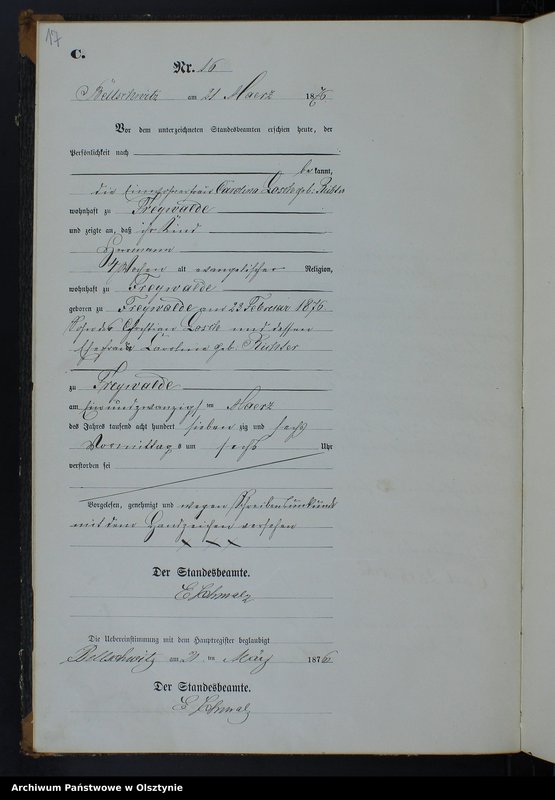 17
C.
Nr. 16
Bellschwitz am 21 Maerz 1876
Vor dem unterzeichneten Standesbeamten erschien heute, der
Persönlichkeit nach
bekannt,
die Carolina Losch geb. Richter
wohnhaft zu Freywalde
und zeigte an, daß ihr Kind
Hermann
4 Wochen alt evangelischer Religion,
wohnhaft zu Freywalde
geboren zu Freywalde am 22 Februar 1876
Sohn des Christian Losch und dessen
Ehefrau Carolina geb. Richter
zu Freywalde
am einundzwanzig ten Maerz
des Jahres tausend acht hundert sieben zig und sechs
Vormittag s um sechs Uhr
verstorben sei
Vorgelesen, genehmigt und wegen Schreibensunkunde
mit dem Handzeichen versehen
x x x
Der Standesbeamte.
E Schmalz
Die Uebereinstimmung mit dem Hauptregister beglaubigt
Bellschwitz am 21 ten März 1876
Der Standesbeamte.
E Schmalz
Archiwum Państwowe w Olsztynie